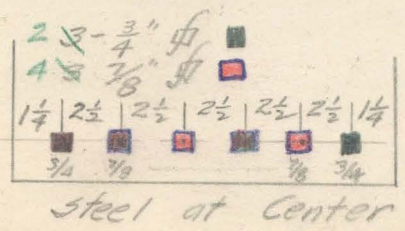 2 3 - 3/4" ⌀
4 3 7/8" ⌀
1 1/4 2 1/2 2 1/2 2 1/2 2 1/2 2 1/2 1 1/4
3/4 7/8 7/8 3/4
Steel at Center